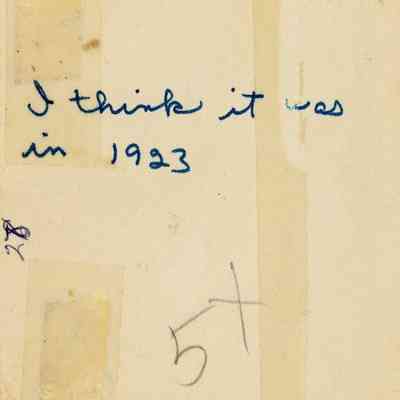 I think it was
in 1923
28
5+